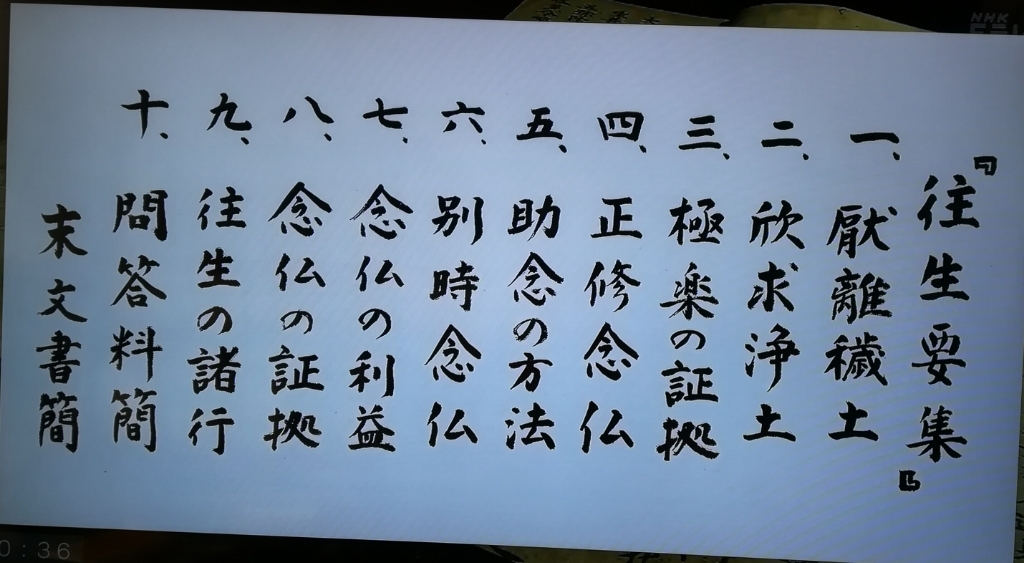 『往生要集』
一、厭離穢土
二、欣求浄土
三、極楽の証拠
四、正修念仏
五、助念の方法
六、別時念仏
七、念仏の利益
八、念仏の証拠
九、往生の諸行
十、問答料簡
末文書簡
NHK
0:36